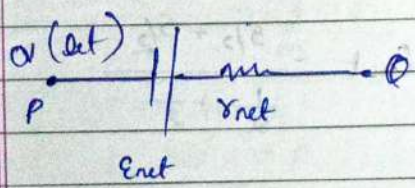 or (let)
P
Q
rnet
Enet